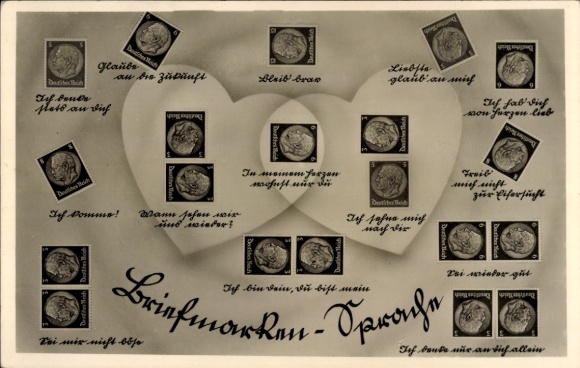 Glaube
an die Zukunft
Bleib brav
Liebste
glaub' an mich
Ich denke
stets an dich
Ich hab' dich
von Herzen lieb
Ich komme!
Wann sehen wir
uns wieder?
In meinem Herzen
wohnst nur du
Ich sehne mich
nach dir
Treib
mich nicht
zur Eifersucht
Ich bin dein, du bist mein
Sei wieder gut
Sei mir nicht böse
Briefmarken-Sprache
Ich denke nur an dich allein
Deutsches Reich